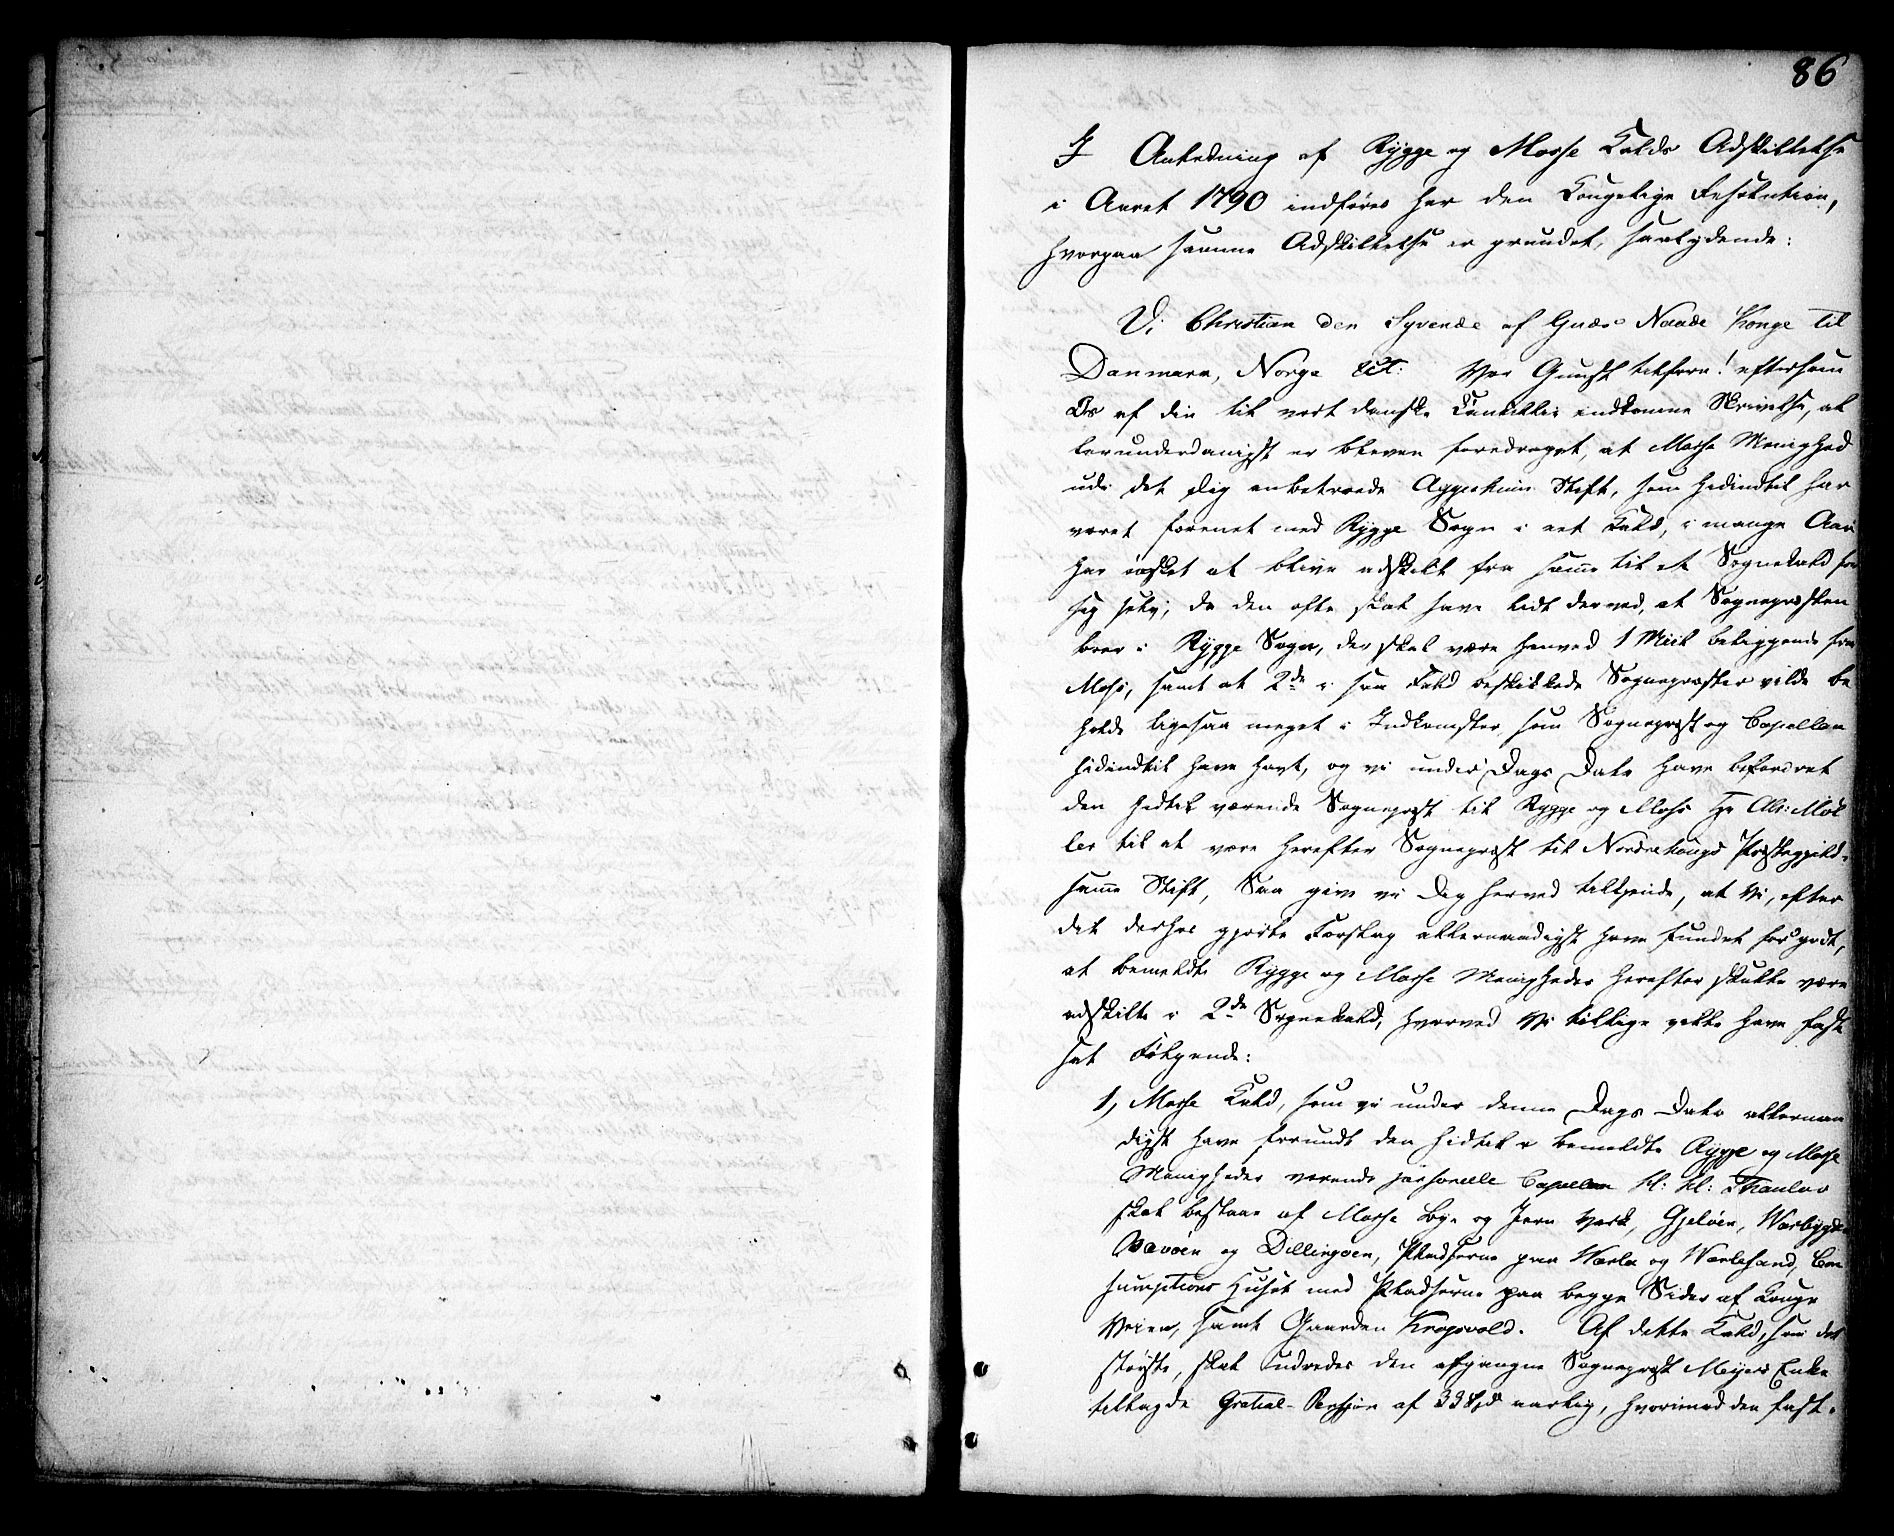 86
I Anledning af Rygge og Mosse Kalds Adskillelse
i Aaret 1790 indføres her den Kongelige Resolution,
hvorpaa samme Adskillelse er grundet, saalydende:
Vi Christian den Syvende af Guds Naade Konge til
Danmark, Norge &ct: Vor Gunst tilforn! eftersom
Os af din til vort danske Cancellie indkomne Skrivelse, al
lerunderdanigst er bleven foredraget, at Mosse Menighed
udi det Dig anbetroede Aggershuus Stift, som hidindtil har
været forenet med Rygge Sogn i eet Kald, i mange Aar
har ønsket at blive adskilt fra samme til et Sognekald for
sig selv, da den ofte skal have lidt derved, at Sognepræsten
boer i Rygge Sogn, der skal være henved 1 Miil beliggende fra
Moss, samt at 2de i saa Fald beskikkede Sognepræster vilde be
holde ligesaa meget i Indkomster som Sognepræst og Capellan
hidindtil have havt, og vi under Dags Dato have befordret
den hidtil værende Sognepræst til Rygge og Moss Hr Abr: Møl
ler til at være herefter Sognepræst til Nordrehougs Præstegjeld
samme Stift, Saa give vi Dig herved tilkjende, at Vi, efter
det derhos gjorte Forslag allernaadigst have fundet for godt,
at bemeldte Rygge og Mosse Menigheder herefter skulle være
adskilte i 2de Sognekald, hvorved Vi tillige ville have fast
sat Følgende:
1, Mosse Kald, som vi under denne Dags Dato allernaa
digst have forundt den hidtil i bemeldte Rygge og Mosse
Menigheder værende personelle Capellan Thaulov
skal bestaae af Mosse Bye og Jern Værk, Gjeløen, Varbygde
Bævøen og Dillingøen, Pladserne paa Værla og Værlesand, Con
sumptions Huset med Pladserne paa begge Sider af Konge
Veien, samt Gaarden Kragsvold. Af dette Kald, som det
største, skal udredes den afgangne Sognepræst Meyers Enke
tillagde Gratial-Pension af 338 rd aarlig, hvorimod den fast-